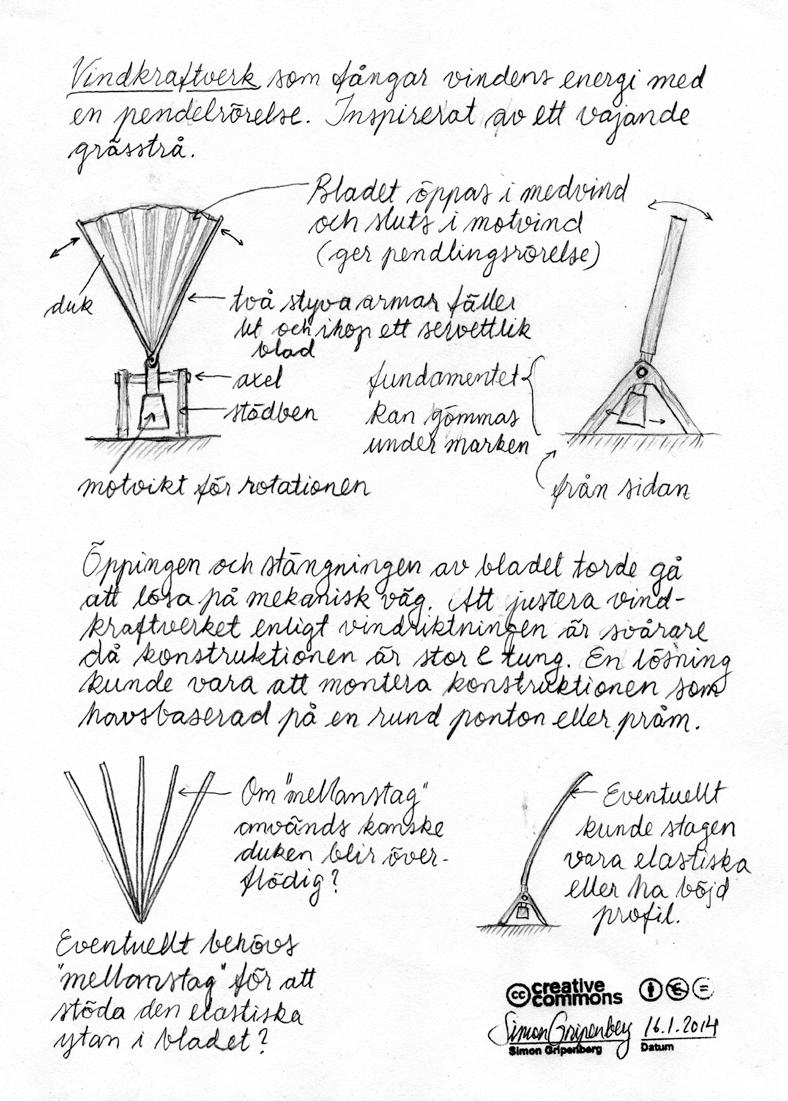 Vindkraftverk som fångar vindens energi med
en pendelrörelse. Inspirerat av ett vajande
grässtrå.
Bladet öppas i medvind
och sluts i motvind
(ger pendlingsrörelse)
duk
två styva armar fäller
ut och ihop ett servettlik
blad
axel
stödben
fundamentet
kan gömmas
under marken
motvikt för rotationen
från sidan
Öppingen och stängningen av bladet torde gå
att lösa på mekanisk väg. Att justera vind-
kraftverket enligt vindriktningen är svårare
då konstruktionen är stor & tung. En lösning
kunde vara att montera konstruktionen som
havsbaserad på en rund ponton eller pråm.
Om "mellanstag"
används kanske
duken blir över-
flödig?
Eventuellt
kunde stagen
vara elastiska
eller ha böjd
profil.
Eventuellt behövs
"mellanstag" för att
stöda den elastiska
ytan i bladet?
cc creative
commons
Simon Gripenberg 16.1.2014
Simon Gripenberg Datum